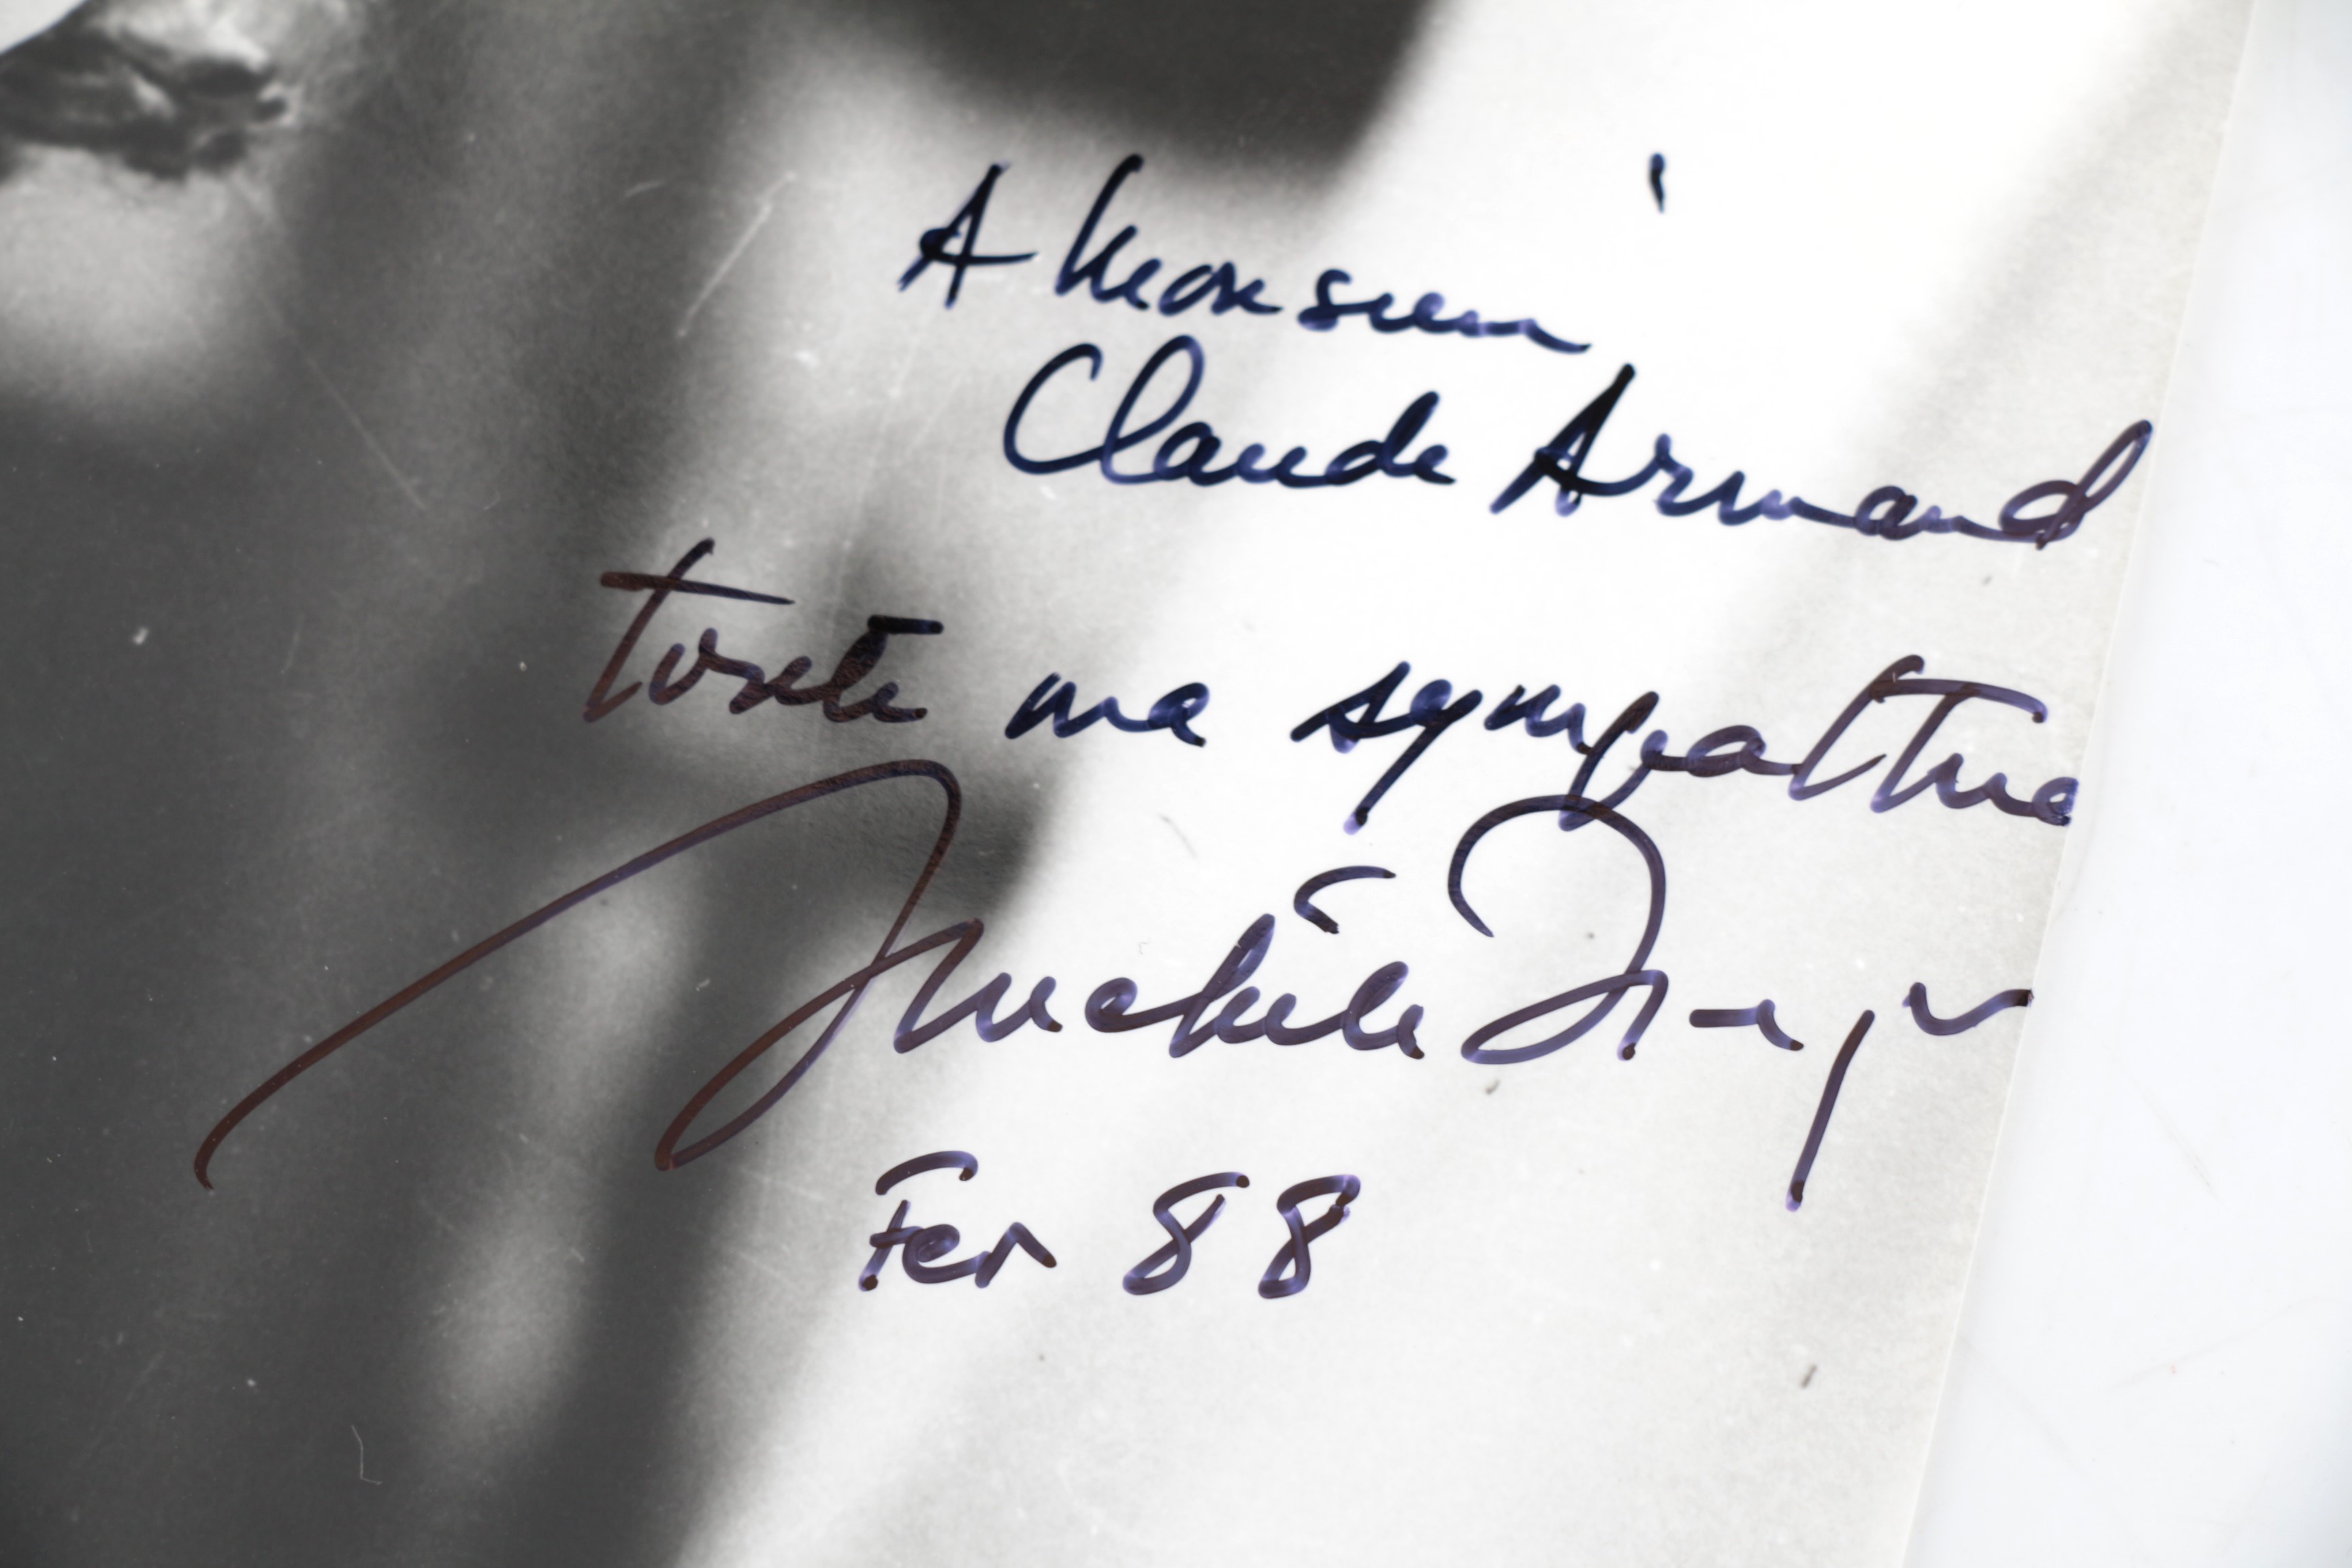 A Monsieur
Claude Armand
toute ma sympathie
Michèle Morgan
Fev 88